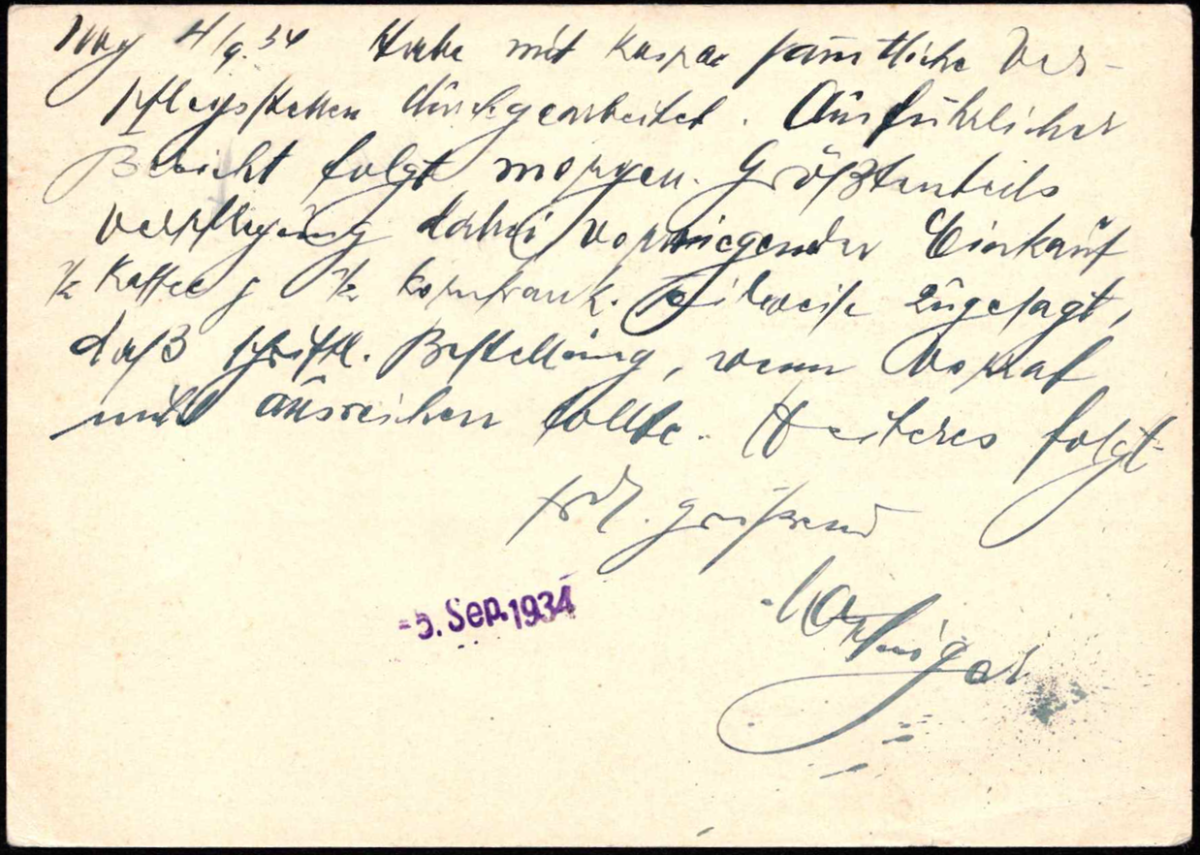 4/9.34 Habe mit Kaspar sämtliche Ver-
pflegsstellen durchgearbeitet. Ausführlicher
Bericht folgt morgen. Größtenteils
Verpflegung dabei vorwiegender Einkauf
1/2 Kaffee 1/2 Kornfrank. teilweise zugesagt,
daß schriftl. Bestellung, wenn Vorrat
nicht ausreichen sollte. Weiteres folgt
frdl. grüßend
-5. Sep. 1934